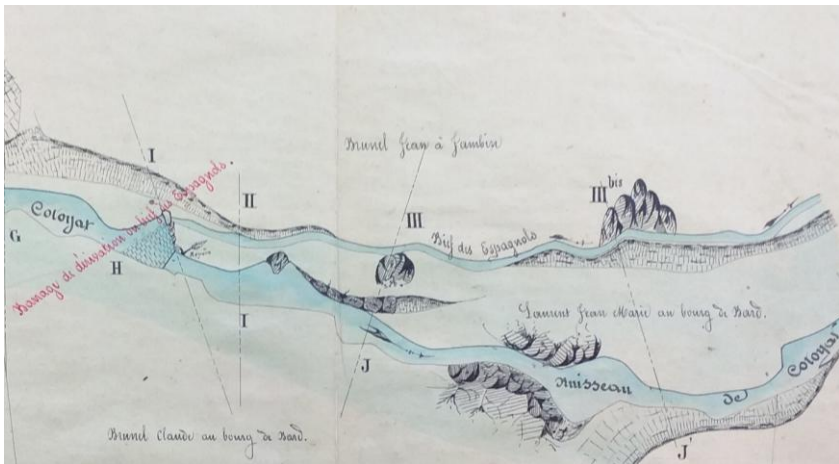 I
Brunel Jean à Jambin
bis
III
Barrage de dérivation du bief des Espagnols.
II
III
Coloyat
Bief des Espagnols
G
H
I
Laurent Jean Marie au bourg de Bard.
J
Ruisseau de Coloyat
Brunel Claude au bourg de Bard.
J'